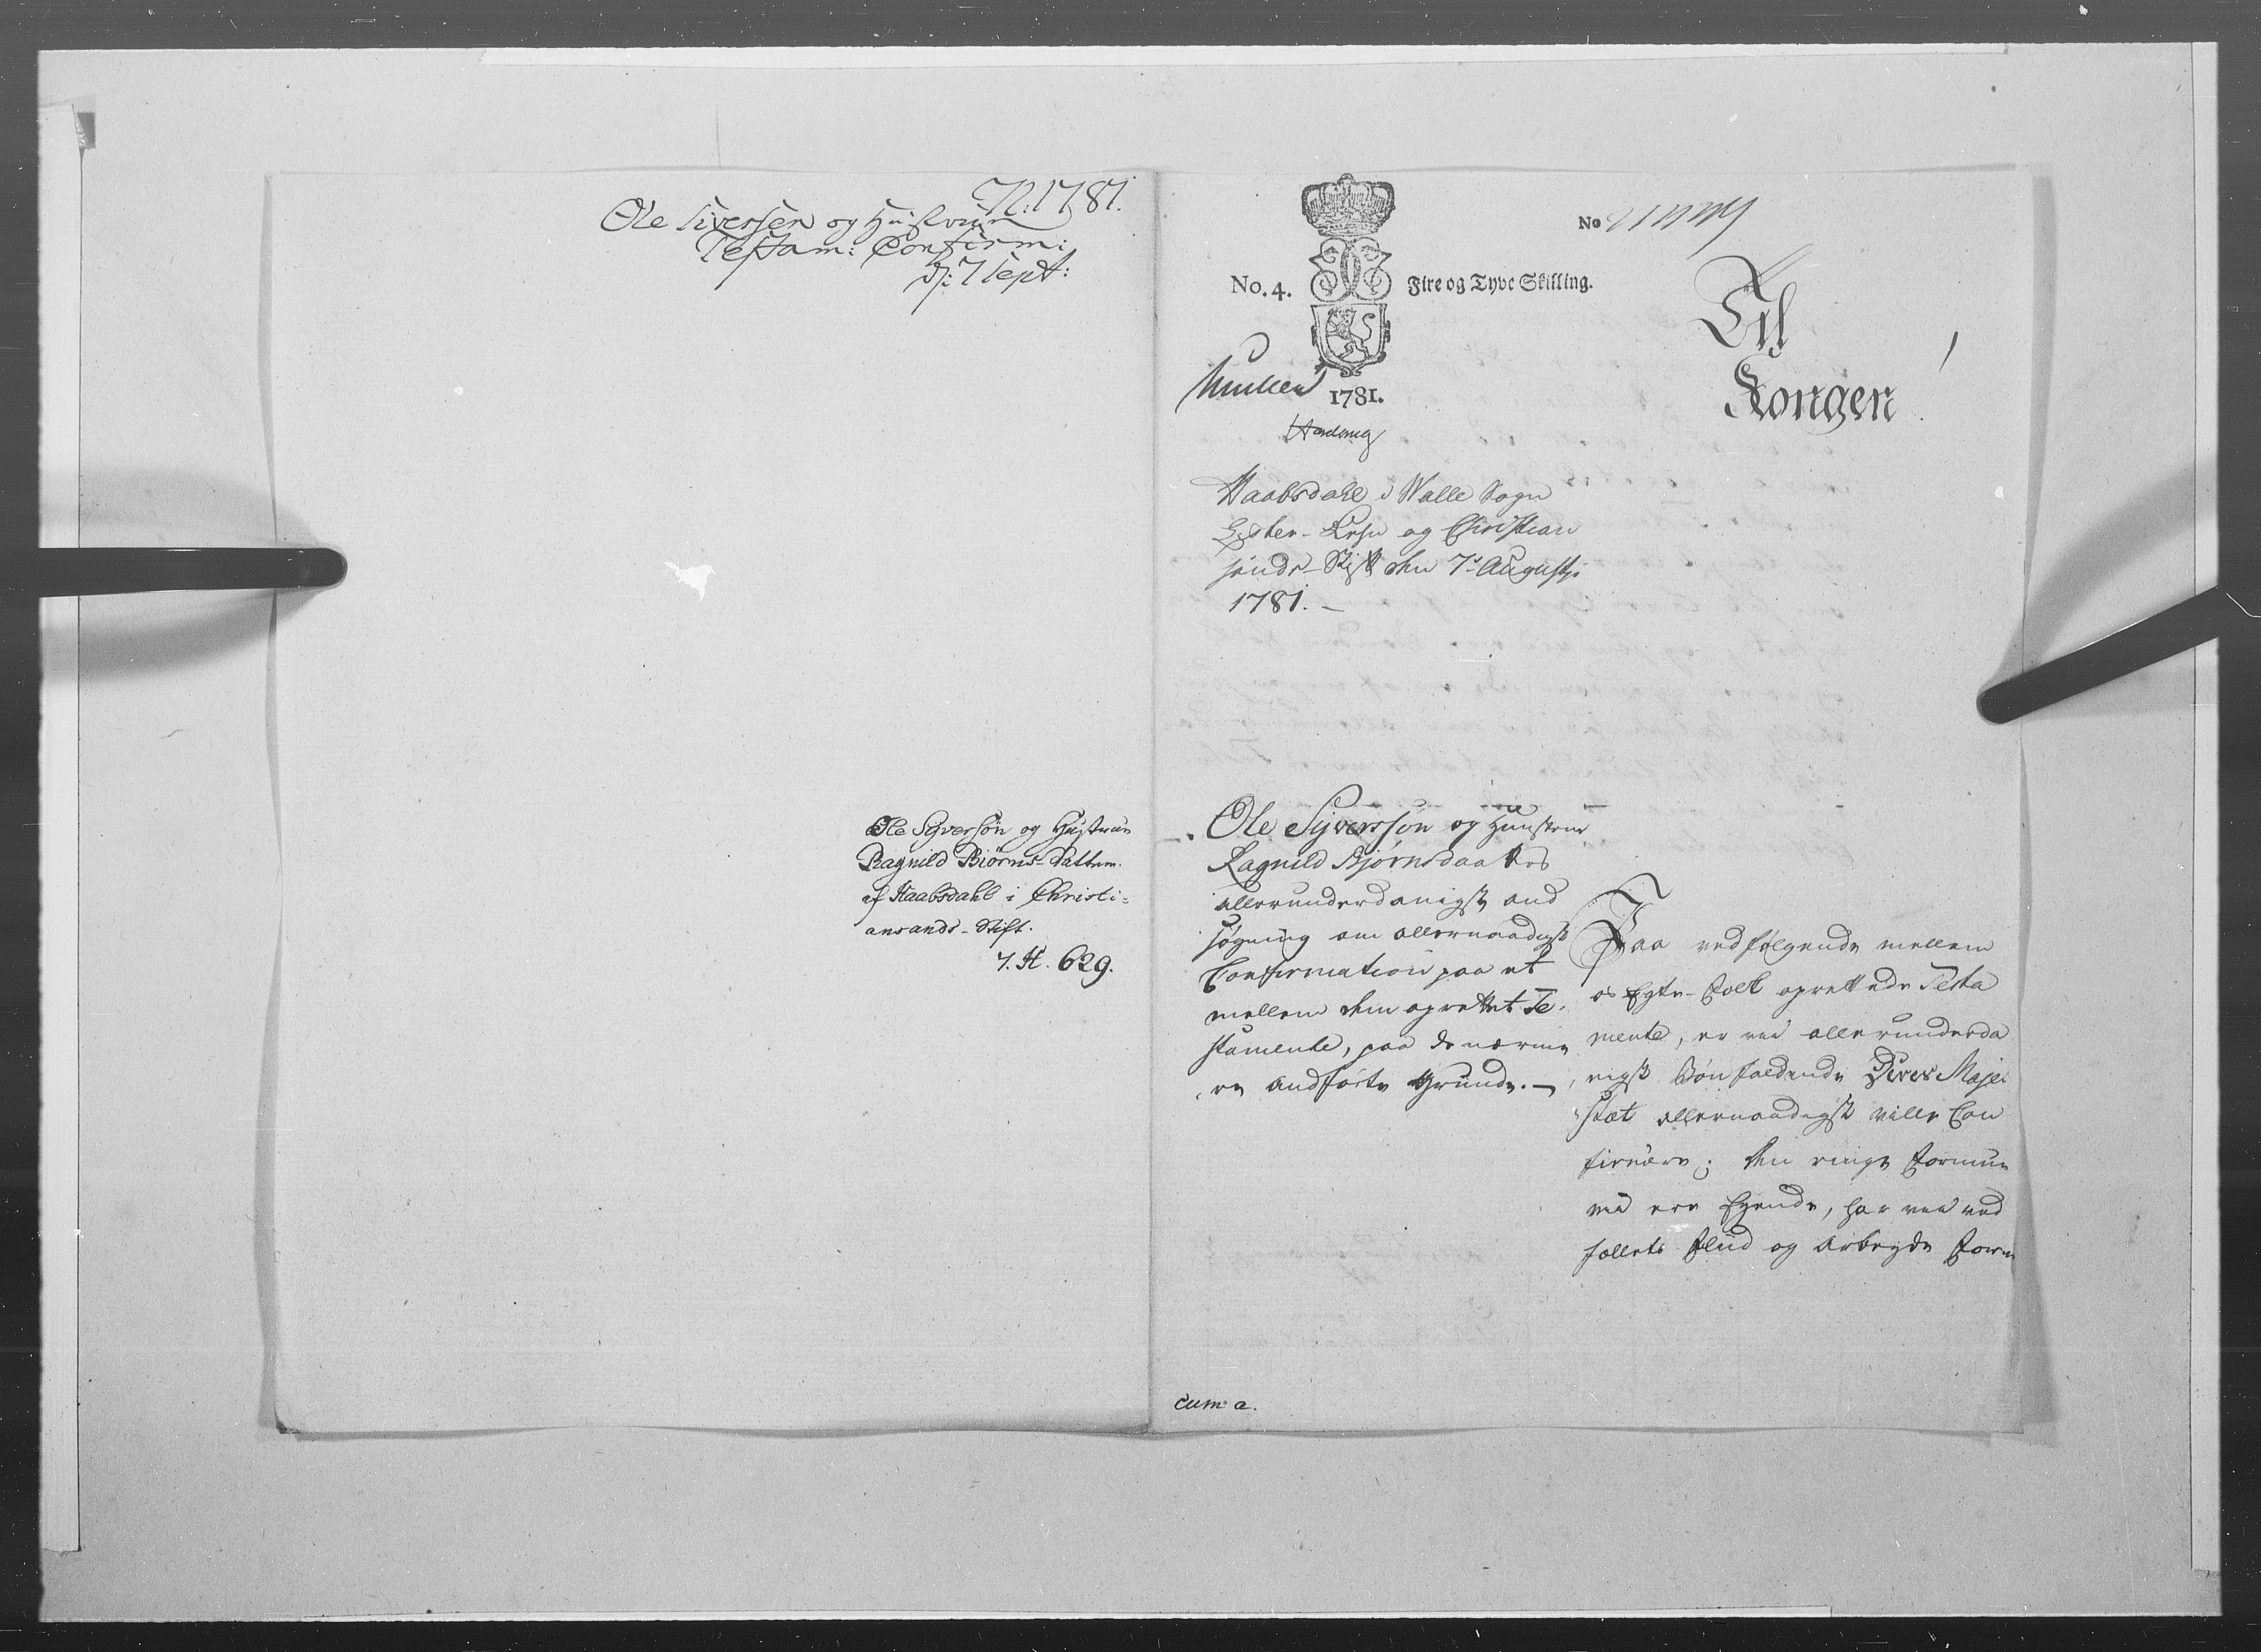 N: 1781.
Ole Siversen og Hustrue
Testam: Confirm:
d: 7 Sept:
Ole Syversøn og Hustrue
Ragnild Biørns-Datter.
af Haabsdahl i Christi-
ansands-Stift.
7. H. 629.
No
No. 4. Fire og Tyve Skilling.
1781.
Til
Kongen
Haabsdahl i Walle Sogn
og Christian
sands-Stift den 7de Augusti
1781.
Ole Syversøn og Hustrue
Ragnild Bjørnsdaatters
allerunderdanigste and
søgning om allernaadigst
Confirmation paa et
mellem dem oprettet Te-
stamente, paa de nærme
re andførte Grunde.
Paa vedfølgende mellem
os Egte-Folk oprettede Testa
mente, er vii allerunderda
nigst Bønfaldende Deres Maje
stæt allernaadigst ville Con
firmere; den ringe Formue
vii ere Eyende, har vii ved
fælleds Fliid og Arbeyde Form
cum a.